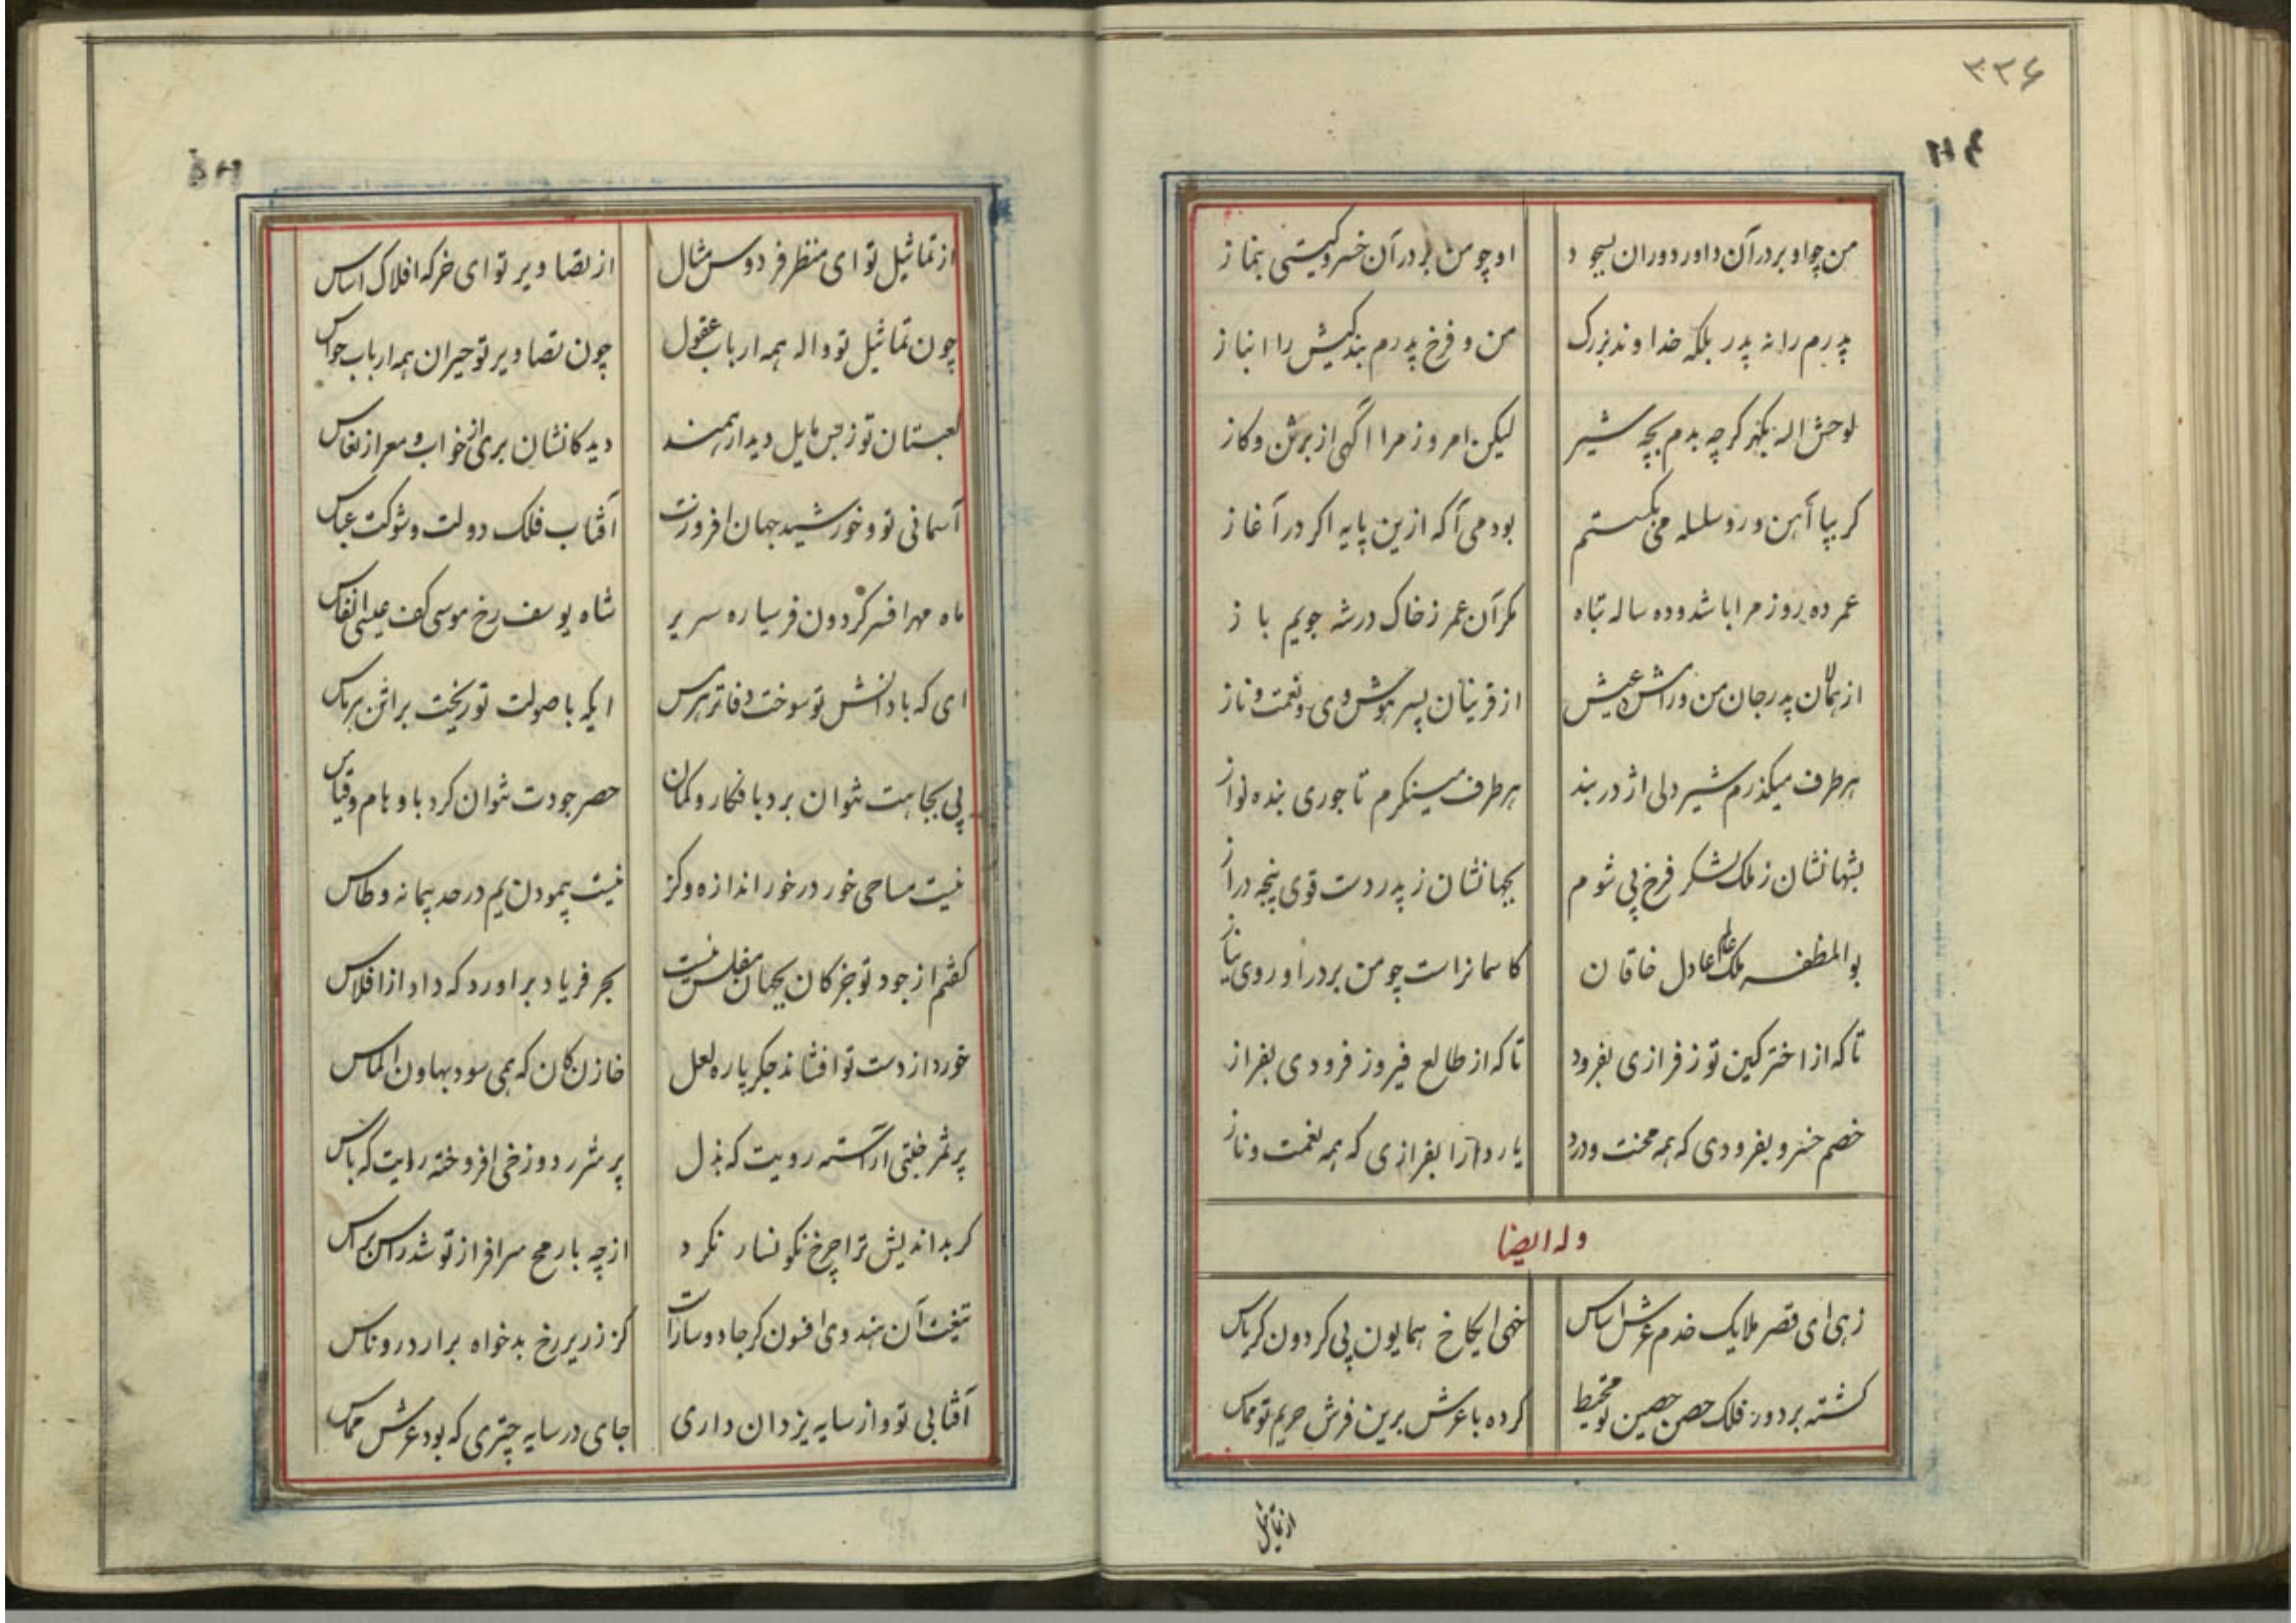 ۳۳۶
من چو او بر در آن داور دوران بسجود
او چو من بر در آن خسرو گیتی بنماز
پدرم را نه پدر بلکه خداوند بزرک
من و فرخ پدرم بندکیش را انباز
لوحش اله بکهر کرچه بدم بچه شیر
لیکن امروز مرا اگهی از برش و کاز
کر بپا آهن و رو سلسله می‌بکستم
بودمی آکه ازین پایه اکر در آغاز
عمر ده روز مرا با شد و ده ساله تباه
مکر آن عمر ز خاک در شه جویم باز
از همان پدر جان من و رامش و عیش
از قرینان پسر هوش وی و نعمت و ناز
هر طرف میکذرم شیر دلی اژدر بند
هر طرف مینکرم تاجوری بنده نواز
بشهانشان ز ملک لشکر فرخ پی شوم
بجهانشان ز پدر دست قوی پنجه دراز
بوالمظفر ملک عادل خاقان
کاسمانراست چو من بر در او روی نیاز
تا که از اختر کین توز فرازی بفرود
تا که از طالع فیروز فرودی بفراز
خصم خسرو بفرودی که همه محنت و درد
یار دارا بفرازی که همه نعمت و ناز
وله ایضا
زهی ای قصر ملایک خدم عرش اساس
خهی ایکاخ همایون پی کردون کریاس
کشته بر دور فلک حصن حصین تو محیط
کرده با عرش برین فرش حریم تو مماس
از تماثیل
از تماثیل تو ای منظر فردوس مثال
از تصاویر تو ای خرکه افلاک اساس
چون تماثیل تو واله همه ارباب عقول
چون تصاویر تو حیران همه ارباب حواس
لعبتان تو ز بس مایل دیدار همند
دیدکانشان بری از خواب و معرا ز نعاس
آسمانی تو و خورشید جهان افروزت
آفتاب فلک دولت و شوکت عباس
ماه مهر افسر کردون فر سیاره سریر
شاه یوسف رخ موسی کف عیسی انفاس
ای که با دانش تو سوخت دفاتر هرمس
ایکه با صولت تو ریخت براثن هرماس
پی بجاهت نتوان برد بافکار و کمان
حصر جودت نتوان کرد باوهام و قیاس
نیست مساحی خور در خور اندازه و کز
نیست پیمودن یم در حد پیمانه و طاس
کفتم از جود تو جز کان بجهان مفلس نیست
بحر فریاد براورد که داد از افلاس
خورد از دست تو افشاند جکرپاره لعل
خازن کان که همی سود بهاون الماس
پر ثمر جنتی آراسته رویت که بذل
پر شرر دوزخی افروخته رایت که باس
کر بداندیش ترا چرخ نکونسار نکرد
از چه با رمح سرافراز تو شد راس براس
تیغت آن هندوی افسون کر جادو ساز است
کز زریر رخ بدخواه برارد روناس
آفتابی تو و از سایه یزدان داری
جای در سایه چتری که بود عرش مماس